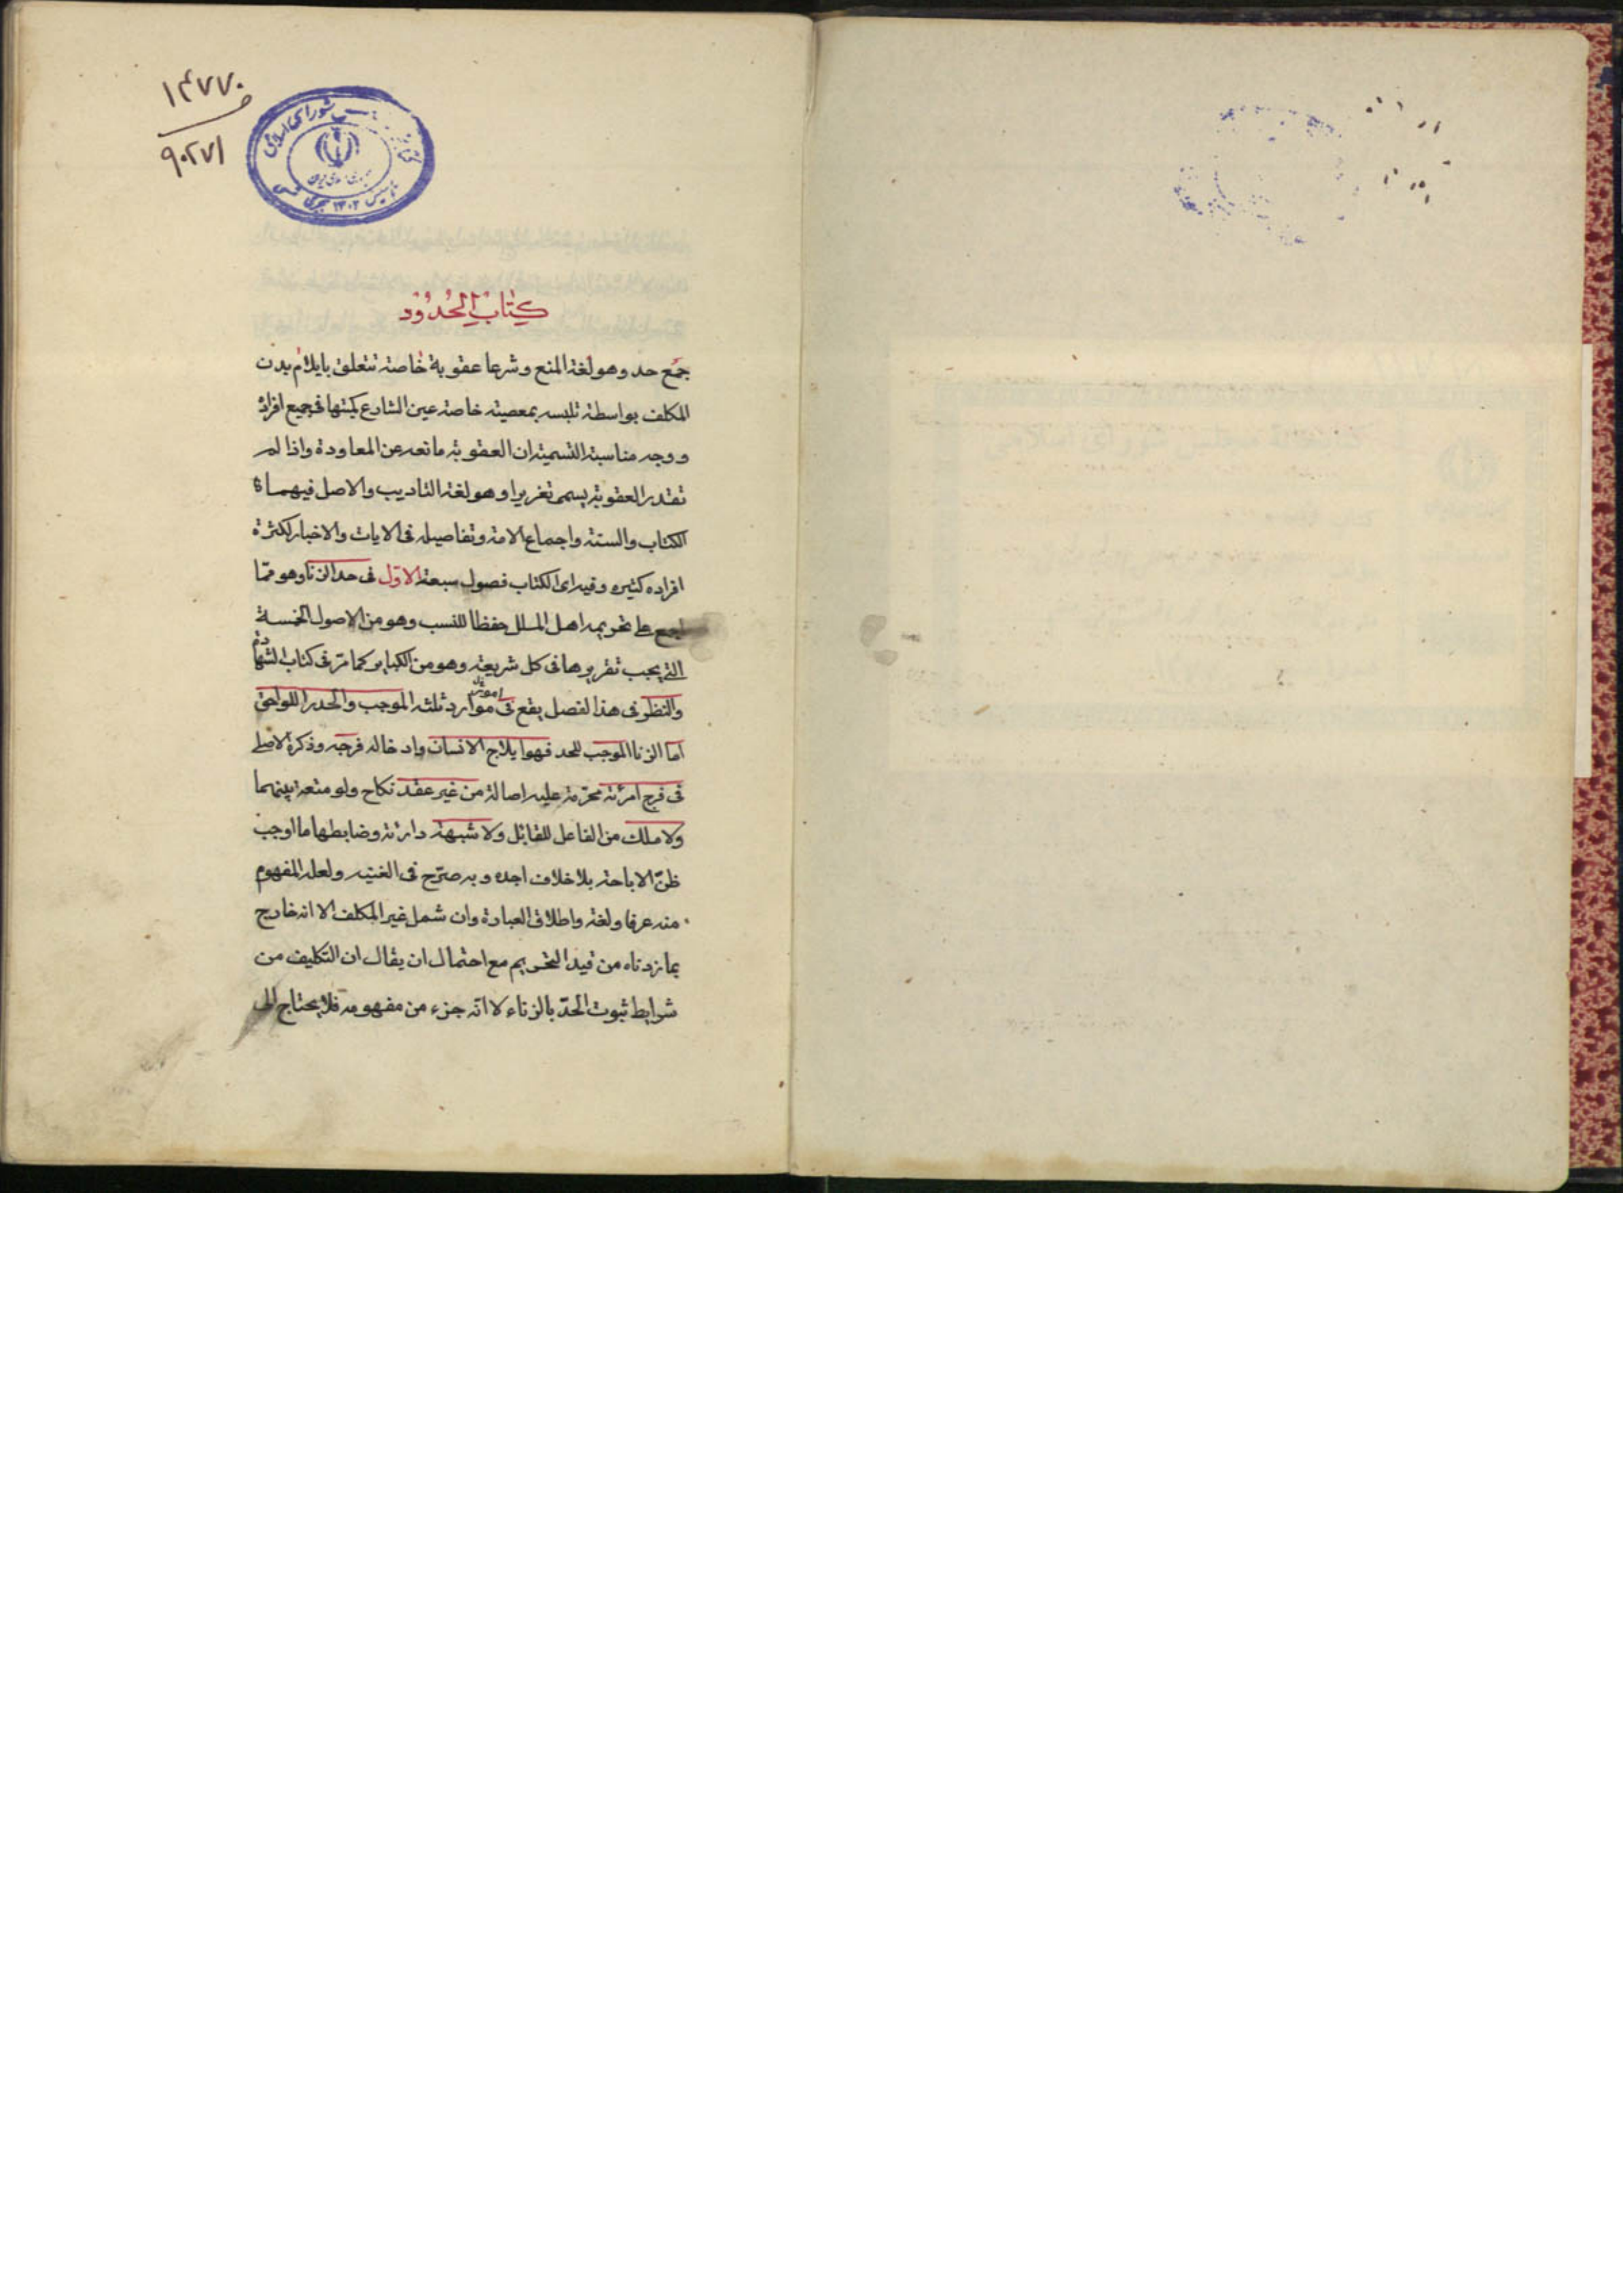 ۱۴۷۷۰
۹۰۲۷۱
شورای اسلامی
كِتابُ الحُدُود
جمع حد وهو لغة المنع وشرعا عقوبة خاصة تتعلق بايلام بدن
المكلف بواسطة تلبسه بمعصية خاصة عين الشارع كميتها في جميع افراده
ووجه مناسبة التسمية ان العقوبة مانعه عن المعاودة واذا لم
تقدر العقوبة يسمى تعزيرا وهو لغة التاديب والاصل فيهما
الكتاب والسنة واجماع الامة وتفاصيله في الايات والاخبار لكثرة
افراده كثيره وفيه اى الكتاب فصول سبعة الاوّل فى حد الزنا وهو ممّا
اجمع على تحريمه اهل الملل حفظا للنسب وهو من الاصول الخمسة
التي يجب تقريرها فى كل شريعة وهو من الكباير كما مرّ فى كتاب الشهادة
والنظر فى هذا الفصل يقع فى موارد ثلثة الموجب والحد واللواحق
امور
اما الزنا الموجب للحد فهو ايلاج الانسان وادخاله فرجه وذكره الاصلي
فى فرج امرئة محرّمة عليه اصالة من غير عقد نكاح ولو متعة بينهما
ولا ملك من الفاعل للقابل ولا شبهة دارئة وضابطها ما اوجب
ظنّ الاباحة بلا خلاف اجده وبه صرّح فى الغنيه ولعله المفهوم
منه عرفا ولغة واطلاق العبارة وان شمل غير المكلف الا انه خارج
بما زدناه من قيد التحريم مع احتمال ان يقال ان التكليف من
شرايط ثبوت الحدّ بالزناء لا انّه جزء من مفهومه فلا يحتاج الى